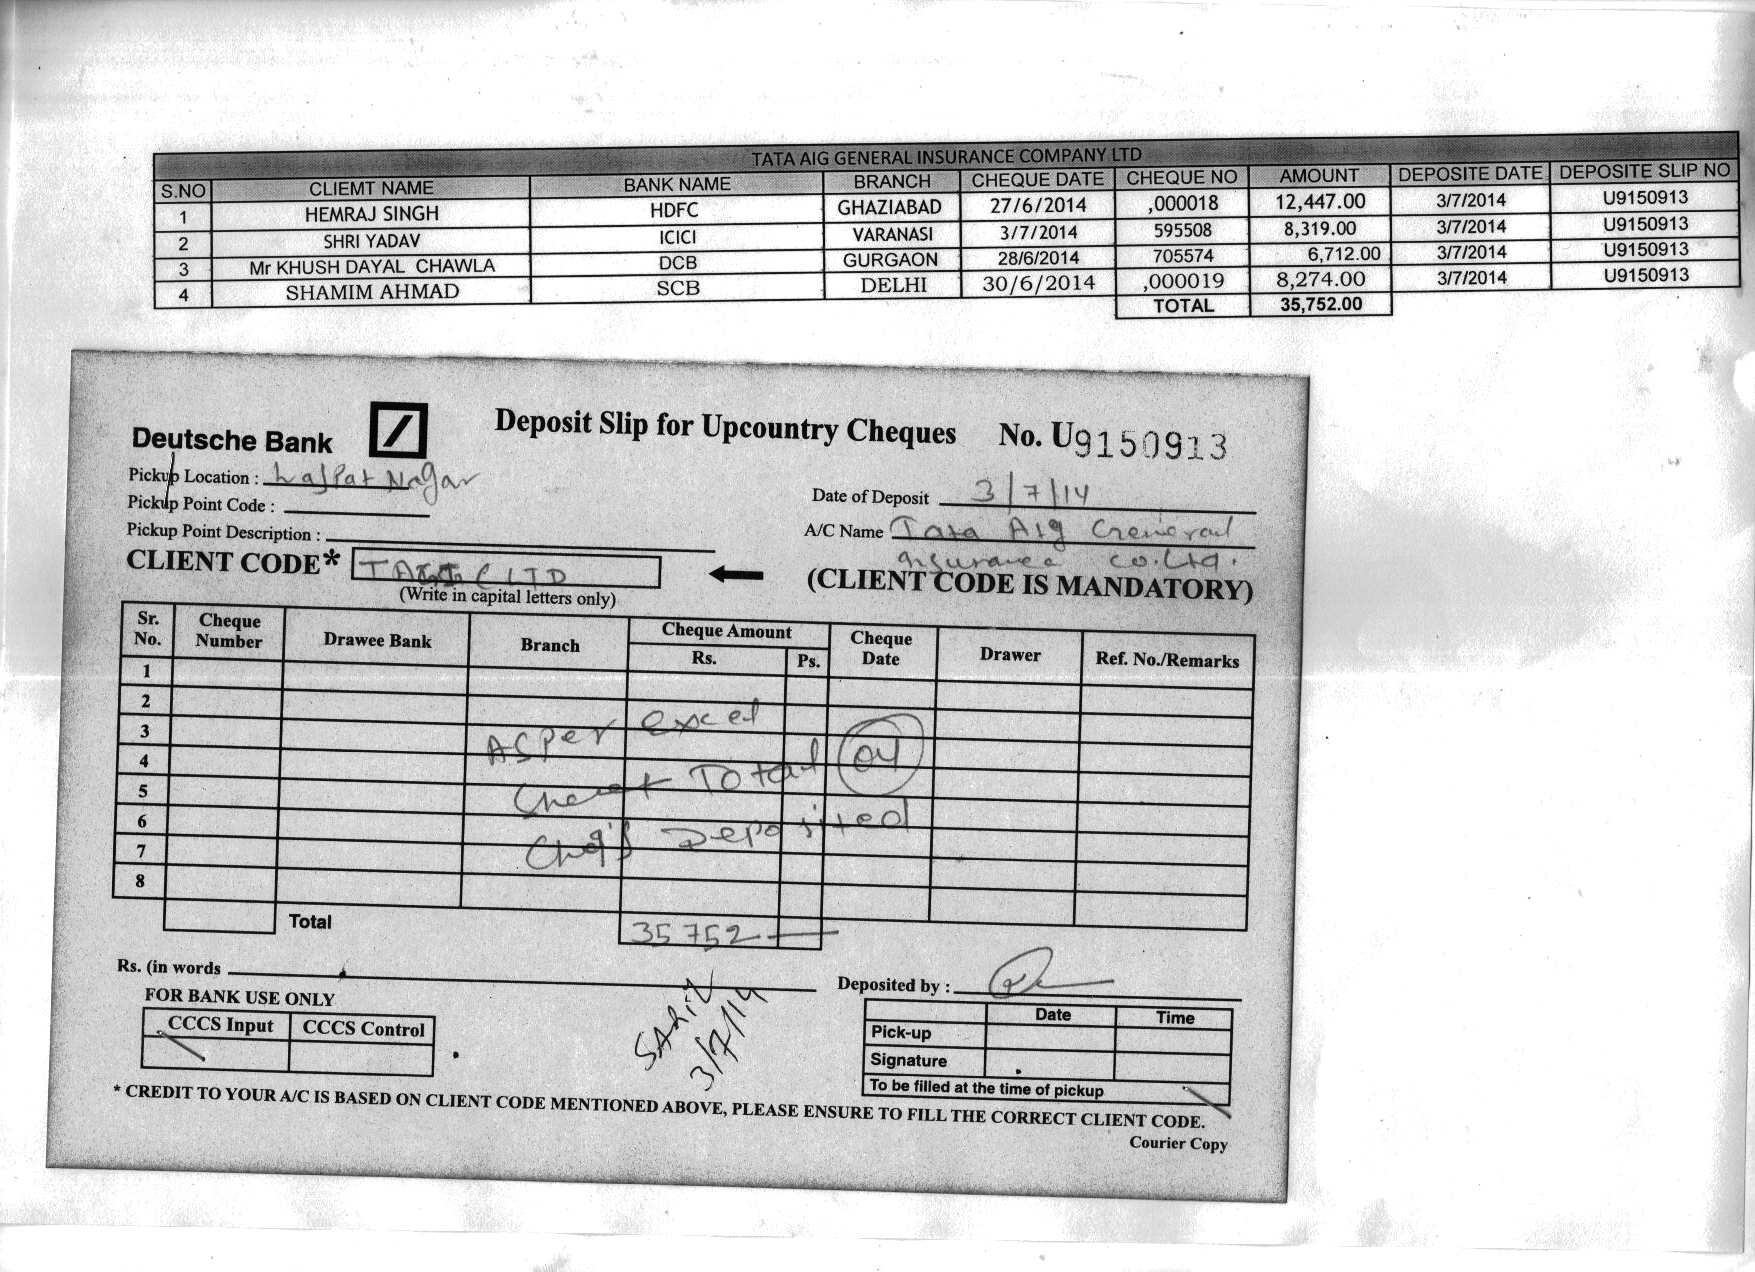 TATA AIG GENERAL INSURANCE COMPANY LTD
S.NO CLIEMT NAME BANK NAME BRANCH CHEQUE DATE CHEQUE NO AMOUNT DEPOSITE DATE DEPOSITE SLIP NO
1 HEMRAJ SINGH HDFC GHAZIABAD 27/6/2014 ,000018 12,447.00 3/7/2014 U9150913
2 SHRI YADAV ICICI VARANASI 3/7/2014 595508 8,319.00 3/7/2014 U9150913
3 Mr KHUSH DAYAL CHAWLA DCB GURGAON 28/6/2014 705574 6,712.00 3/7/2014 U9150913
4 SHAMIM AHMAD SCB DELHI 30/6/2014 ,000019 8,274.00 3/7/2014 U9150913
TOTAL 35,752.00
Deutsche Bank Deposit Slip for Upcountry Cheques No. U9150913
Pickup Location : Lajpat Nagar
Pickup Point Code :
Date of Deposit 3/7/14
Pickup Point Description :
A/C Name Tata AIg General
insurance co.Ltd.
CLIENT CODE*
(CLIENT CODE IS MANDATORY)
(Write in capital letters only)
Sr. No. Cheque Number Drawee Bank Branch Cheque Amount Rs. Ps. Cheque Date Drawer Ref. No./Remarks
1
2
3
4
5
6
7
8
ASPer excel
Total 04
Chq's Deposited
Total 35752
Rs. (in words
Deposited by :
FOR BANK USE ONLY
CCCS Input CCCS Control
3/7/14
Date Time
Pick-up
Signature
To be filled at the time of pickup
* CREDIT TO YOUR A/C IS BASED ON CLIENT CODE MENTIONED ABOVE, PLEASE ENSURE TO FILL THE CORRECT CLIENT CODE.
Courier Copy